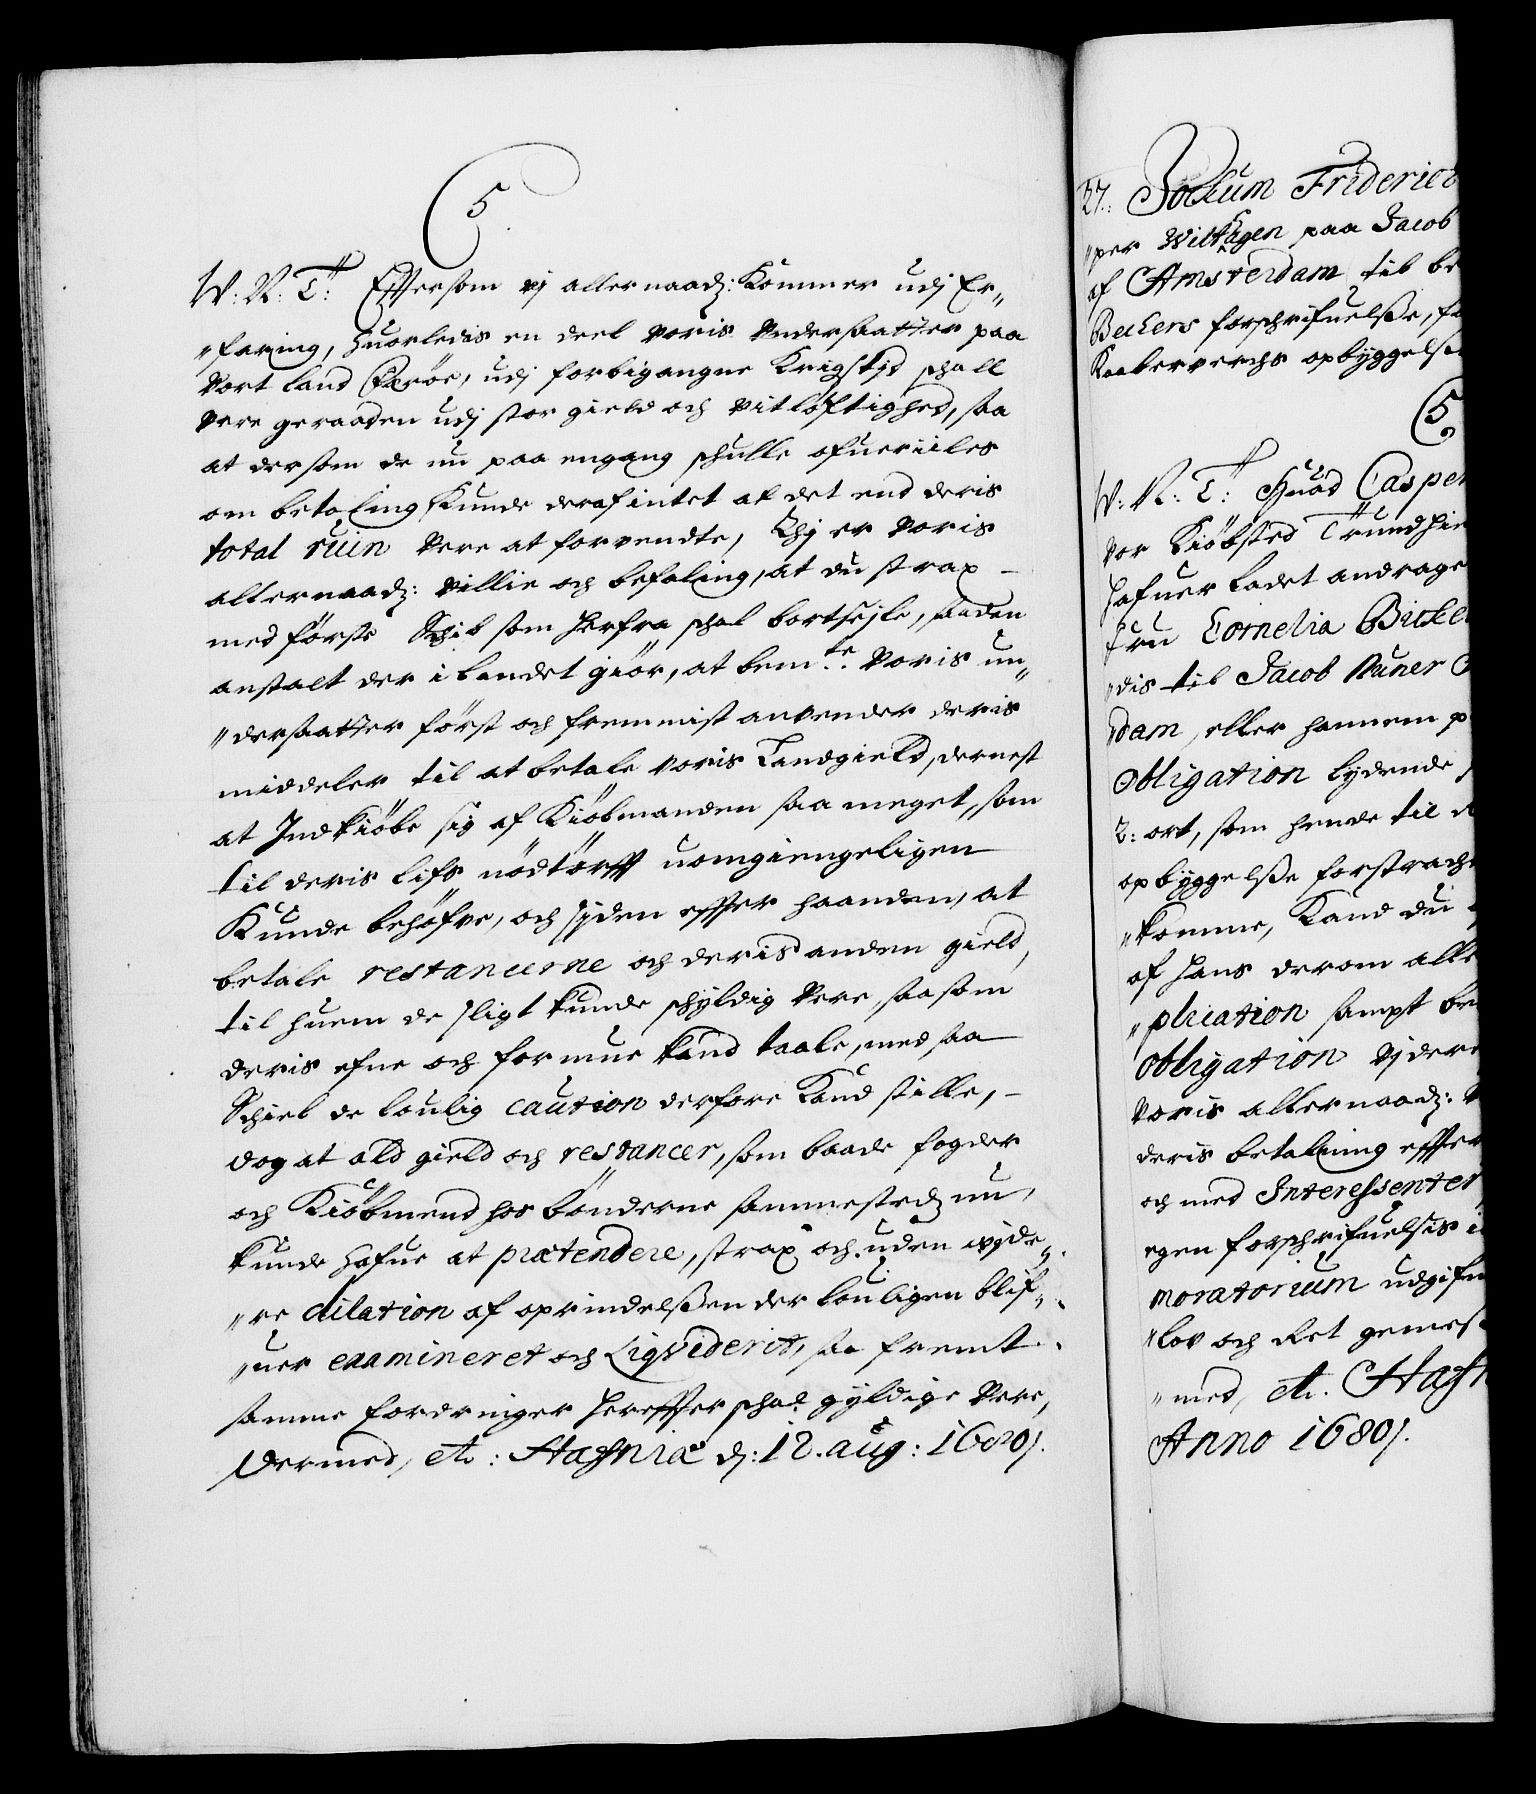 5
W: V: T: Effversom vj allernaadz: Kommer udj Er„
„faring, huorledis en deel voris Undersaatter paa
vort land Færöe, udj forbigangne Krigstjd schall
vere geraaden udj stor gield och vitløftighed, saa
at dersom de nu paa engang schulle ofueriiles
om betaling Kunde deraf intet af det end deris
total ruin vere at forvendte, Thj er voris
allernaadz: villie och befaling, at du strax –
med förste Schib som herfra schal bortsejle, saaden
anstalt der i landet giör, at bem.te voris un„
„dersaatter först och fremmist anvender deris
middeler til at betale voris Landgield, dernest
at Indkiöbe sig af Kiöbmanden saa meget, som
til deris lifs nödtörfft uomgiengeligen
Kunde behöfve, och sjden effter haanden, at
betale restancerne och deris anden gield,
til huem de sligt kunde schyldig vere, saasom
deris efne och formue kand taale, med saa
Schiel de loulig caution derfore Kand stille, –
dog at ald gield och restancer, som baade fogder
och Kiöbmend hos bönderne sammestedz nu,
kunde hafue at prætendere, strax och uden vjde„
„re dilation af oprindelsßen der louligen blif„
„uer examineret och Liqviderit, saa fremt
samme fordringer hereffter schal gyldige vere,
Dermed, etc: Hafniæ d: 12. aug: 1680.
27.: Jockum Friderich
„per Wilhagen paa Jacob
af Amsterdam til be
Beckers forschrifuelsße, fo
Kaaberverchs opbyggelse
5
W: V: T: Huad Casper
vor Kiöbsted Trundhie
hafuer ladet andrage
fru Cornelia Bicke
„dis til Jacob
„dam, eller hannem p
Obligation lydende
2: ort, som hende til d
opbyggelsße forstrach
„komme, Kand du
af hans derom alle
„plication sampt be
obligation vjdere
voris allernaadz: v
deris betalning effter
och med Interessenter
egen forschrifuelsis i
moratorium udgifn
„lov och Ret gemes
„med, etc. Hafn
Anno 1680.